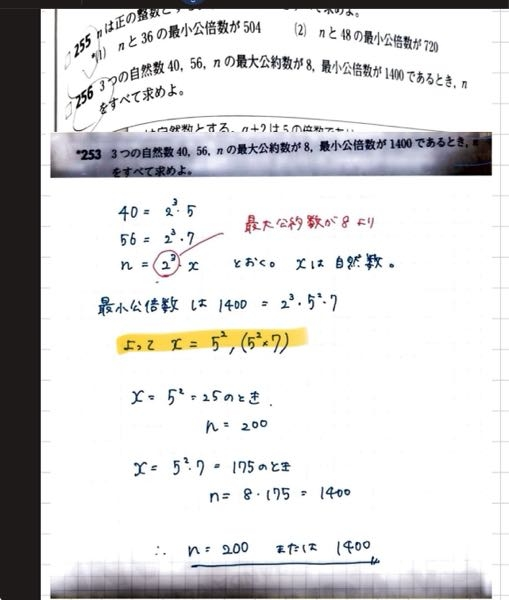 □255 nは正の整数と
*(1) nと36の最小公倍数が504 (2) nと48の最小公倍数が720
□256 3つの自然数40, 56, nの最大公約数が8, 最小公倍数が1400であるとき, n
をすべて求めよ。
*253 3つの自然数40, 56, nの最大公約数が8, 最小公倍数が1400であるとき, n
をすべて求めよ。
40 = 2³・5
56 = 2³・7
最大公約数が8より
n = 2³・x とおく。xは自然数。
最小公倍数は1400 = 2³・5²・7
よって x = 5², (5²×7)
x = 5² = 25のとき.
n = 200
x = 5²・7 = 175のとき
n = 8・175 = 1400
∴ n = 200 または 1400